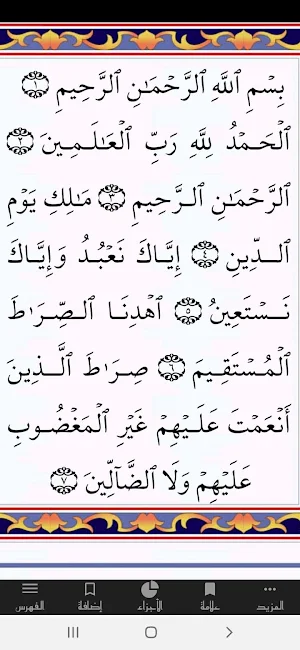 بِسْمِ ٱللَّهِ ٱلرَّحْمَـٰنِ ٱلرَّحِيمِ ١
ٱلْحَمْدُ لِلَّهِ رَبِّ ٱلْعَـٰلَمِينَ ٢
ٱلرَّحْمَـٰنِ ٱلرَّحِيمِ ٣ مَـٰلِكِ يَوْمِ
ٱلدِّينِ ٤ إِيَّاكَ نَعْبُدُ وَإِيَّاكَ
نَسْتَعِينُ ٥ ٱهْدِنَا ٱلصِّرَٰطَ
ٱلْمُسْتَقِيمَ ٦ صِرَٰطَ ٱلَّذِينَ
أَنْعَمْتَ عَلَيْهِمْ غَيْرِ ٱلْمَغْضُوبِ
عَلَيْهِمْ وَلَا ٱلضَّآلِّينَ ٧
المزيد علامة الأجزاء إضافة الفهرس